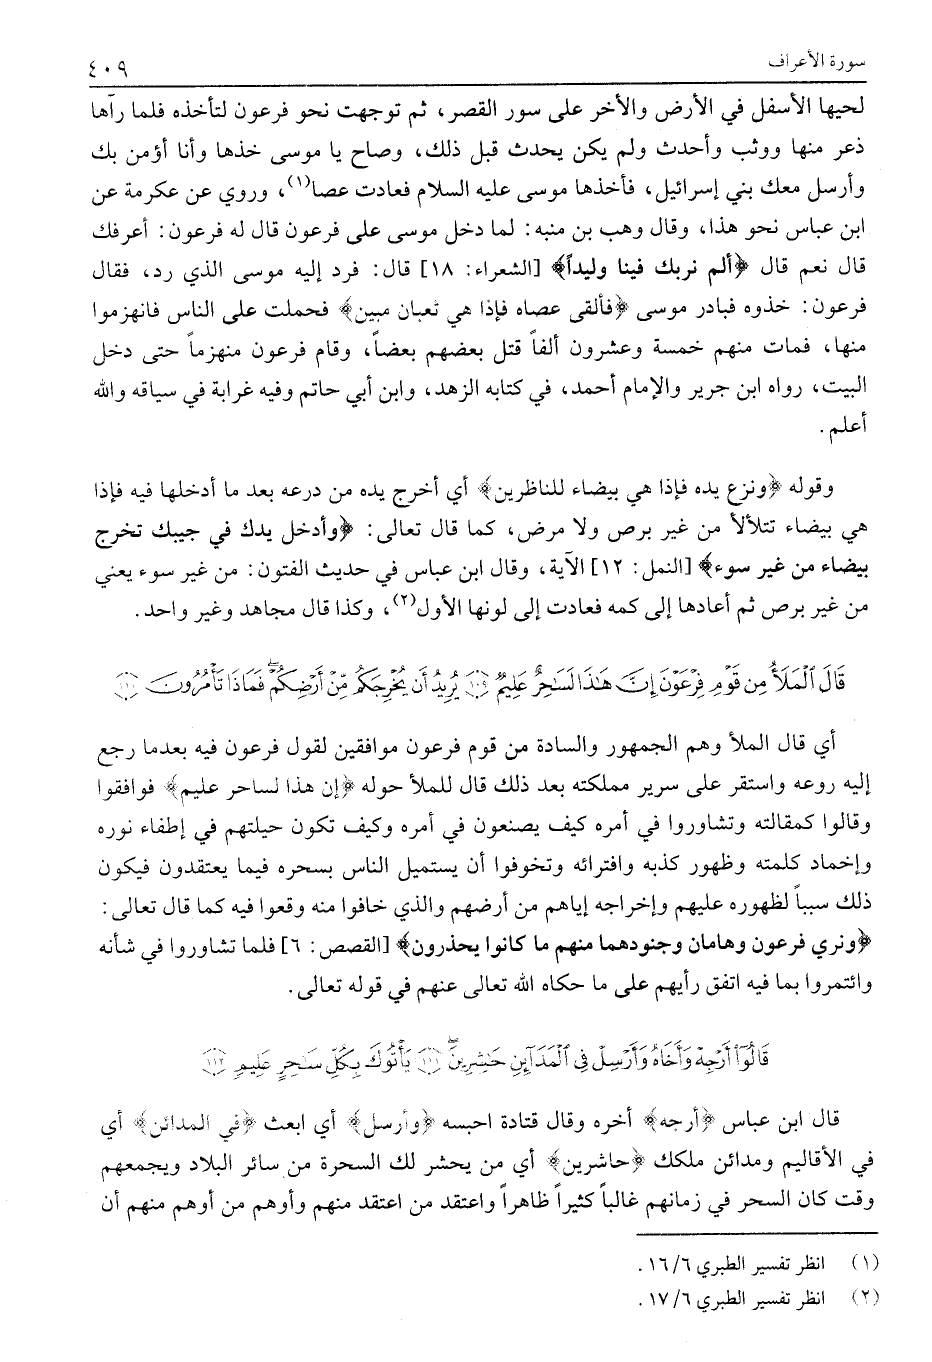 سورة الأعراف
٤٠٩
لحيها الأسفل في الأرض والأخر على سور القصر، ثم توجهت نحو فرعون لتأخذه فلما رآها
ذعر منها ووثب وأحدث ولم يكن يحدث قبل ذلك، وصاح يا موسى خذها وأنا أؤمن بك
وأرسل معك بني إسرائيل، فأخذها موسى عليه السلام فعادت عصا(١)، وروي عن عكرمة عن
ابن عباس نحو هذا، وقال وهب بن منبه: لما دخل موسى على فرعون قال له فرعون: أعرفك
قال نعم قال ﴿ألم نربك فينا وليداً﴾ [الشعراء: ١٨] قال: فرد إليه موسى الذي رد، فقال
فرعون: خذوه فبادر موسى ﴿فألقى عصاه فإذا هي ثعبان مبين﴾ فحملت على الناس فانهزموا
منها، فمات منهم خمسة وعشرون ألفاً قتل بعضهم بعضاً، وقام فرعون منهزماً حتى دخل
البيت، رواه ابن جرير والإمام أحمد، في كتابه الزهد، وابن أبي حاتم وفيه غرابة في سياقه والله
أعلم.
وقوله ﴿ونزع يده فإذا هي بيضاء للناظرين﴾ أي أخرج يده من درعه بعد ما أدخلها فيه فإذا
هي بيضاء تتلألأ من غير برص ولا مرض، كما قال تعالى: ﴿وأدخل يدك في جيبك تخرج
بيضاء من غير سوء﴾ [النمل: ١٢] الآية، وقال ابن عباس في حديث الفتون: من غير سوء يعني
من غير برص ثم أعادها إلى كمه فعادت إلى لونها الأول(٢)، وكذا قال مجاهد وغير واحد.
قَالَ ٱلْمَلَأُ مِن قَوْمِ فِرْعَوْنَ إِنَّ هَٰذَا لَسَٰحِرٌ عَلِيمٌ ١٠٩ يُرِيدُ أَن يُخْرِجَكُم مِّنْ أَرْضِكُمْ ۖ فَمَاذَا تَأْمُرُونَ ١١٠
أي قال الملأ وهم الجمهور والسادة من قوم فرعون موافقين لقول فرعون فيه بعدما رجع
إليه روعه واستقر على سرير مملكته بعد ذلك قال للملأ حوله ﴿إن هذا لساحر عليم﴾ فوافقوا
وقالوا كمقالته وتشاوروا في أمره كيف يصنعون في أمره وكيف تكون حيلتهم في إطفاء نوره
وإخماد كلمته وظهور كذبه وافترائه وتخوفوا أن يستميل الناس بسحره فيما يعتقدون فيكون
ذلك سبباً لظهوره عليهم وإخراجه إياهم من أرضهم والذي خافوا منه وقعوا فيه كما قال تعالى:
﴿ونري فرعون وهامان وجنودهما منهم ما كانوا يحذرون﴾ [القصص: ٦] فلما تشاوروا في شأنه
وائتمروا بما فيه اتفق رأيهم على ما حكاه الله تعالى عنهم في قوله تعالى.
قَالُوٓا۟ أَرْجِهْ وَأَخَاهُ وَأَرْسِلْ فِى ٱلْمَدَآئِنِ حَٰشِرِينَ ١١١ يَأْتُوكَ بِكُلِّ سَٰحِرٍ عَلِيمٍ ١١٢
قال ابن عباس ﴿أرجه﴾ أخره وقال قتادة احبسه ﴿وأرسل﴾ أي ابعث ﴿في المدائن﴾ أي
في الأقاليم ومدائن ملكك ﴿حاشرين﴾ أي من يحشر لك السحرة من سائر البلاد ويجمعهم
وقت كان السحر في زمانهم غالباً كثيراً ظاهراً واعتقد من اعتقد منهم وأوهم من أوهم منهم أن
(١) انظر تفسير الطبري ١٦/٦.
(٢) انظر تفسير الطبري ١٧/٦.